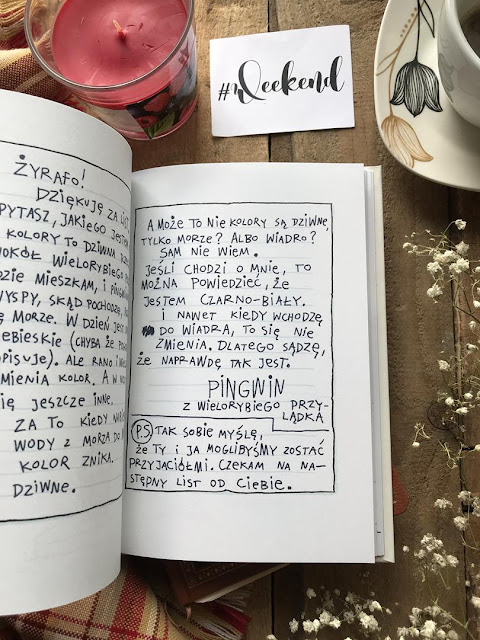 #Weekend
ŻYRAFO!
DZIĘKUJĘ ZA LIST
PYTASZ, JAKIEGO JESTEM
KOLORY TO DZIWNA
WIELORYBIEGO
MIESZKAM, I
WYSPY, SKĄD POCHODZĘ,
MORZE. W DZIEŃ JEST
(CHYBA ŻE
ALE RANO I
KOLOR. A W
SIĘ JESZCZE INNE.
ZA TO KIEDY
WODY Z MORZA DO
KOLOR ZNIKA.
DZIWNE.
A MOŻE TO NIE KOLORY SĄ DZIWNE,
TYLKO MORZE? ALBO WIADRO?
SAM NIE WIEM.
JEŚLI CHODZI O MNIE, TO
MOŻNA POWIEDZIEĆ, ŻE
JESTEM CZARNO-BIAŁY.
I NAWET KIEDY WCHODZĘ
DO WIADRA, TO SIĘ NIE
ZMIENIA. DLATEGO SĄDZĘ,
ŻE NAPRAWDĘ TAK JEST.
PINGWIN
Z WIELORYBIEGO PRZY-
LĄDKA
P.S. TAK SOBIE MYŚLĘ,
ŻE TY I JA MOGLIBYŚMY ZOSTAĆ
PRZYJACIÓŁMI. CZEKAM NA NA-
STĘPNY LIST OD CIEBIE.